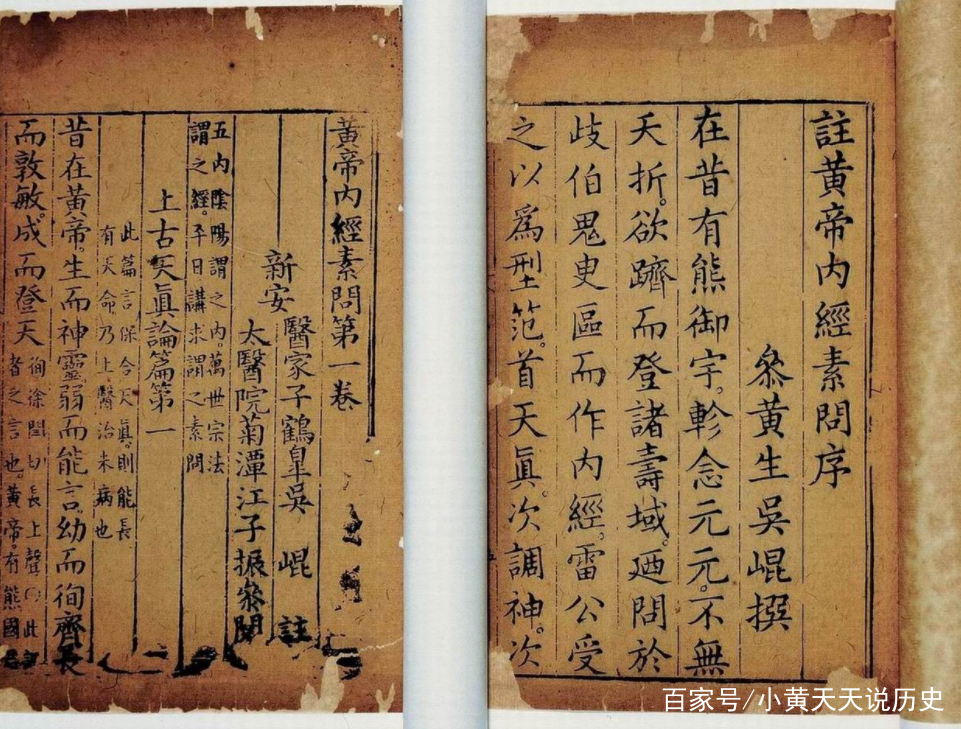 註黃帝內經素問序
叅黃生吳崐撰
在昔有熊御宇。軫念元元。不無
夭折。欲躋而登諸壽域。廼問於
歧伯鬼臾區而作內經。雷公受
之以爲型范。首天眞。次調神。次
黃帝內經素問第一卷
新安
醫家子鶴皐吳 崐 註
太醫院菊潭江子振叅閱
五內陰陽謂之內。萬世宗法
謂之經。平日講求謂之素問
上古天眞論篇第一
此篇言保合天眞。則能長
有天命乃上醫治未病也
昔在黃帝。生而神靈弱而能言。幼而徇齊長
而敦敏。成而登天
徇徐閏切長上聲〇此
者之言也。黃帝。有熊國
百家号/小黄天天说历史